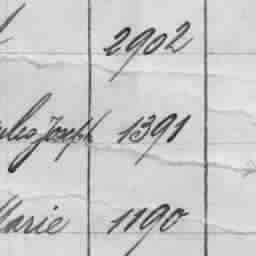 2902
Joseph 1391
Marie 1190